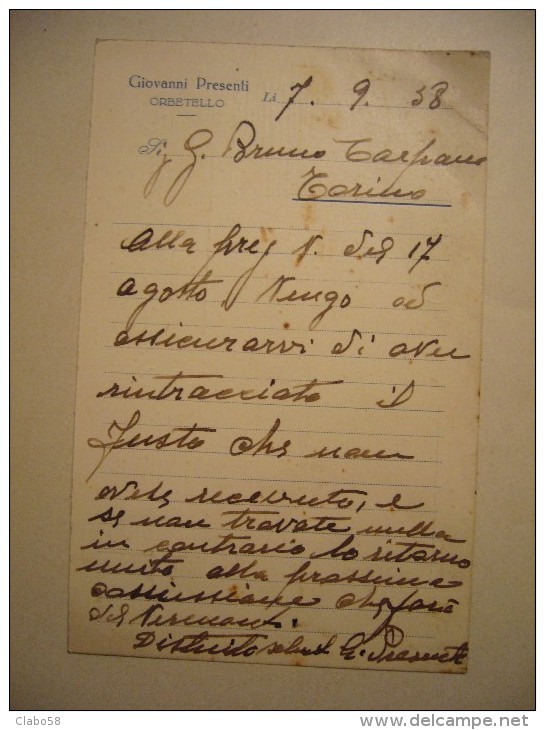 Giovanni Presenti
ORBETELLO
Li 7. 9. 38
Sig G. Bruno Carpano
Torino
Alla preg V. del 17
agosto, Vengo ad
assicurarvi di aver
rintracciato il
fusto che non
avete recevuto, e
se non trovate nulla
in contrario lo ritorno
unito alla prossima
commissione che farò
del Vermouth.
Distinti saluti G. Presenti
Clabo58
www.delcampe.net